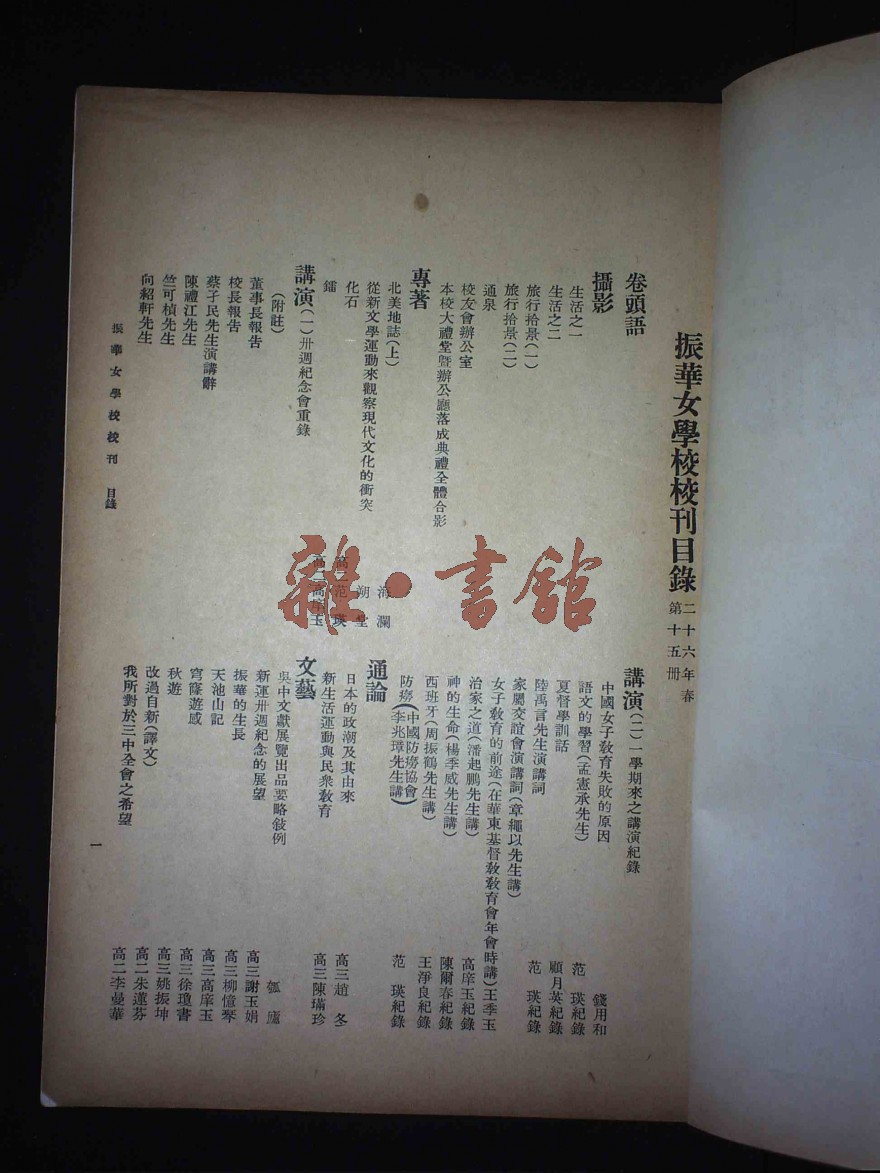 振華女學校校刊目錄
二十六年春
第十五册
卷頭語
攝影
生活之一
生活之二
旅行拾景(一)
旅行拾景(二)
通泉
校友會辦公室
本校大禮堂暨辦公廳落成典禮全體合影
專著
北美地誌(上) 海瀾
從新文學運動來觀察現代文化的衝突 朔堂
化石 高二范瑛
鐳 高二高庠玉
講演(一)卅週紀念會重錄
(附註)
董事長報告
校長報告
蔡孑民先生演講辭
陳禮江先生
竺可楨先生
向紹軒先生
講演(二)一學期來之講演紀錄
中國女子教育失敗的原因 錢用和
語文的學習(孟憲承先生) 范瑛紀錄
夏督學訓話 顧月英紀錄
陸禹言先生演講詞 范瑛紀錄
家屬交誼會演講詞(章繩以先生講)
女子教育的前途(在華東基督教教育會年會時講)王季玉
治家之道(潘起鵬先生講) 高庠玉紀錄
神的生命(楊季威先生講) 陳爾春紀錄
西班牙(周振鶴先生講) 王淨良紀錄
防癆(中國防癆協會李兆璋先生講) 范瑛紀錄
通論
日本的政潮及其由來 高三趙冬
新生活運動與民衆教育 高三陳瑞珍
文藝
吳中文獻展覽出品要略敍例 瓠廬
新運卅週紀念的展望 高三謝玉娟
振華的生長 高三柳憶琴
天池山記 高三高庠玉
穹窿遊感 高三徐瓊書
秋遊 高三姚振坤
改過自新(譯文) 高二朱蓮芬
我所對於三中全會之希望 高二李曼華
振華女學校校刊 目錄
一
雜·書館